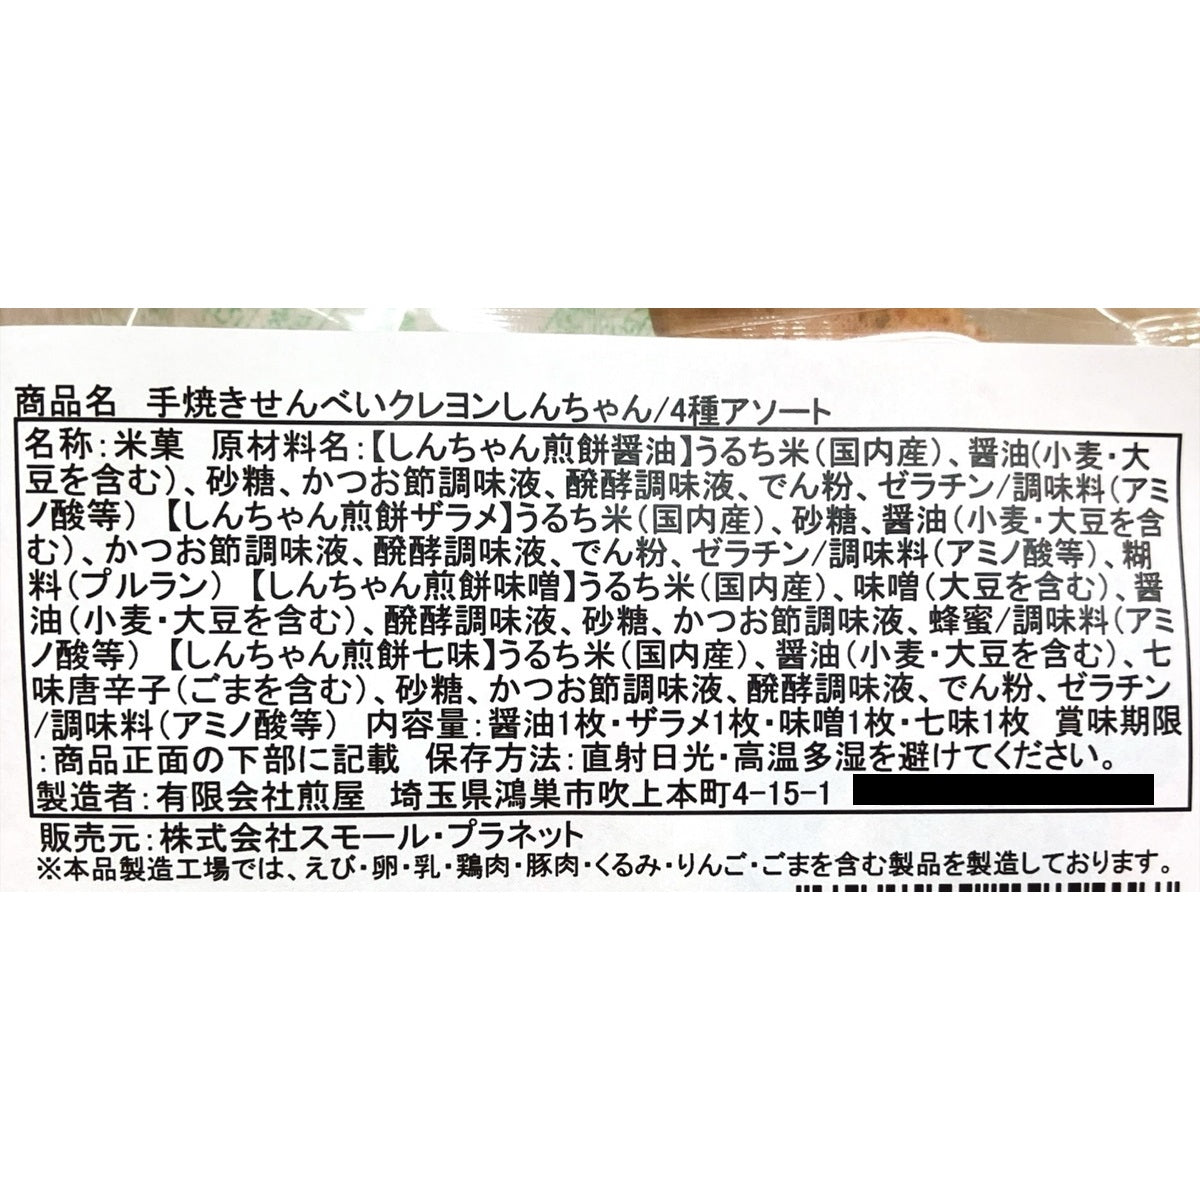 商品名 手焼きせんべいクレヨンしんちゃん/4種アソート
名称:米菓 原材料名:【しんちゃん煎餅醤油】うるち米(国内産)、醤油(小麦・大
豆を含む)、砂糖、かつお節調味液、醗酵調味液、でん粉、ゼラチン/調味料(アミ
ノ酸等)【しんちゃん煎餅ザラメ】うるち米(国内産)、砂糖、醤油(小麦・大豆を含
む)、かつお節調味液、醗酵調味液、でん粉、ゼラチン/調味料(アミノ酸等)、糊
料(プルラン)【しんちゃん煎餅味噌】うるち米(国内産)、味噌(大豆を含む)、醤
油(小麦・大豆を含む)、醗酵調味液、砂糖、かつお節調味液、蜂蜜/調味料(アミ
ノ酸等)【しんちゃん煎餅七味】うるち米(国内産)、醤油(小麦・大豆を含む)、七
味唐辛子(ごまを含む)、砂糖、かつお節調味液、醗酵調味液、でん粉、ゼラチン
/調味料(アミノ酸等) 内容量:醤油1枚・ザラメ1枚・味噌1枚・七味1枚 賞味期限
:商品正面の下部に記載 保存方法:直射日光・高温多湿を避けてください。
製造者:有限会社煎屋 埼玉県鴻巣市吹上本町4-15-1
販売元:株式会社スモール・プラネット
※本品製造工場では、えび・卵・乳・鶏肉・豚肉・くるみ・りんご・ごまを含む製品を製造しております。